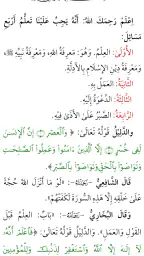 اِعْلَمْ رَحِمَكَ اللهُ: أَنَّهُ يَجِبُ عَلَيْنَا تَعَلُّمُ أَرْبَعِ
مَسَائِلَ:
الْأُولَى: الْعِلْمُ، وَهُوَ: مَعْرِفَةُ اللهِ، وَمَعْرِفَةُ نَبِيِّهِ ﷺ،
وَمَعْرِفَةُ دِيْنِ الإِسْلَامِ بِالْأَدِلَّةِ.
الثَّانِيَةُ: الْعَمَلُ بِهِ.
الثَّالِثَةُ: الدَّعْوَةُ إِلَيْهِ.
الرَّابِعَةُ: الصَّبْرُ عَلَى الْأَذَى فِيْهِ.
وَالدَّلِيْلُ قَوْلُهُ تَعَالَى: ﴿وَالْعَصْرِ ۝ إِنَّ الْإِنسَانَ
لَفِي خُسْرٍ ۝ إِلَّا الَّذِينَ آمَنُوا وَعَمِلُوا الصَّالِحَاتِ
وَتَوَاصَوْا بِالْحَقِّ وَتَوَاصَوْا بِالصَّبْرِ﴾.
قَالَ الشَّافِعِيُّ -: «لَوْ مَا أَنْزَلَ اللهُ حُجَّةً
عَلَى خَلْقِهِ إِلَّا هَذِهِ السُّوْرَةَ لَكَفَتْهُمْ».
وَقَالَ الْبُخَارِيُّ -: «بَابٌ: الْعِلْمُ قَبْلَ
الْقَوْلِ وَالْعَمَلِ». وَالدَّلِيْلُ قَوْلُهُ تَعَالَى: ﴿فَاعْلَمْ أَنَّهُ
لَا إِلَٰهَ إِلَّا اللهُ وَاسْتَغْفِرْ لِذَنبِكَ وَلِلْمُؤْمِنِينَ